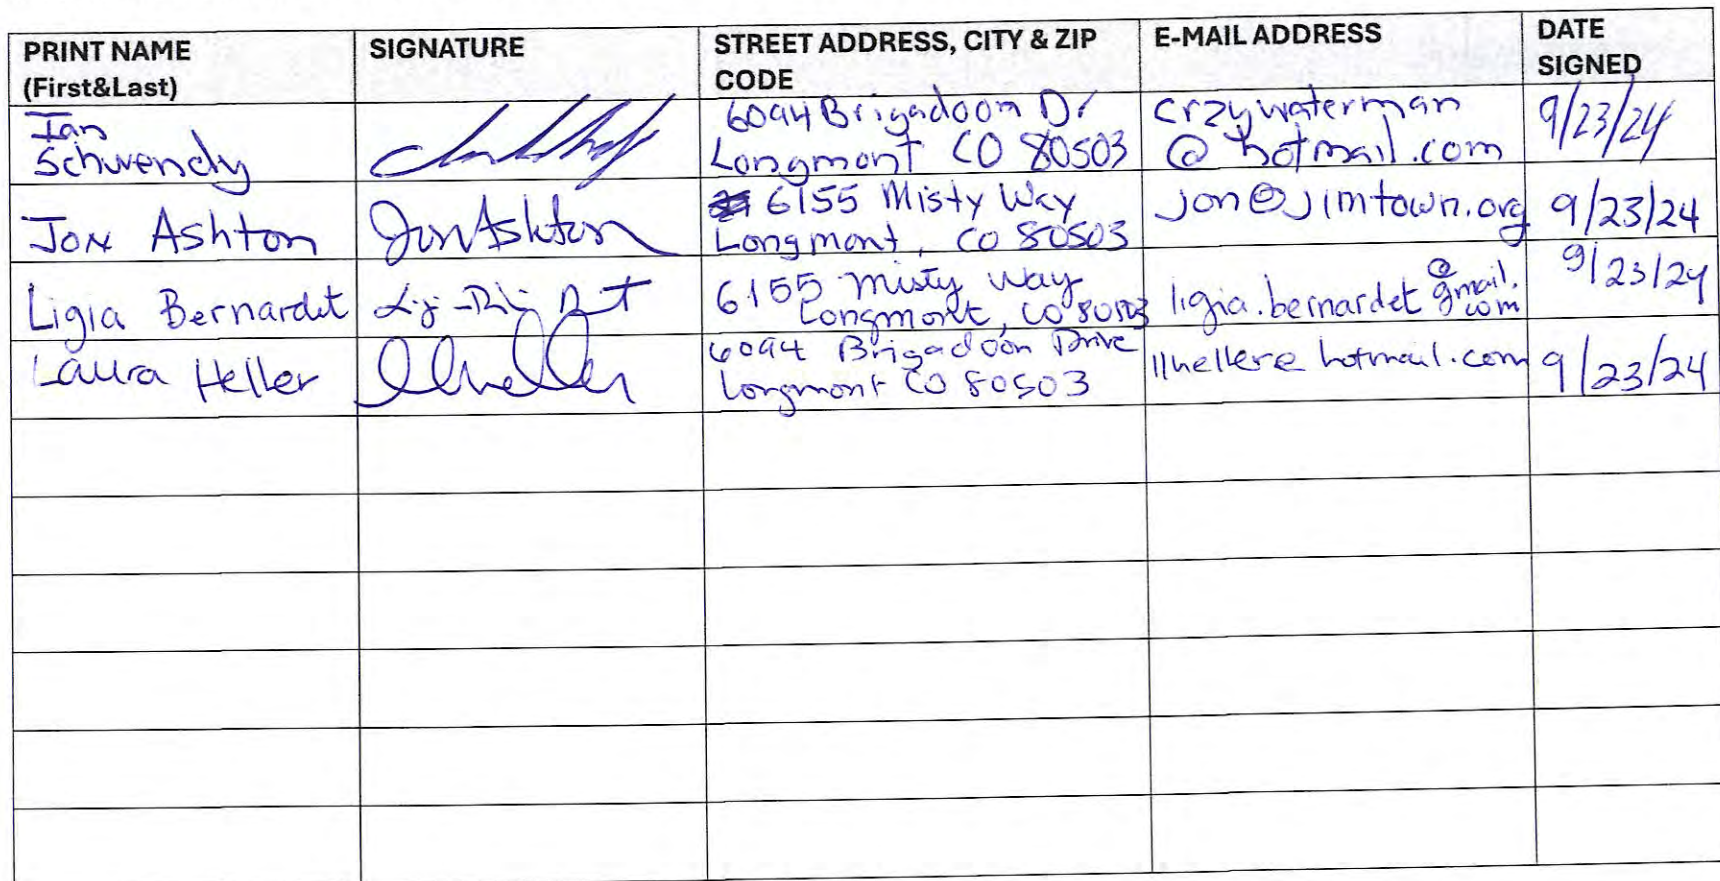 PRINT NAME
(First&Last)
SIGNATURE
STREET ADDRESS, CITY & ZIP
CODE
E-MAIL ADDRESS
DATE
SIGNED
Ian
Schwendy
6094 Brigadoon Dr
Longmont CO 80503
crzywaterman
@ hotmail.com
9/23/24
Jon Ashton
Jon Ashton
6155 Misty Way
Longmont, CO 80503
jon@jimtown.org
9/23/24
Ligia Bernardet
6155 Misty Way
Longmont, CO 80503
ligia.bernardet @gmail.
com
9/23/24
Laura Heller
6094 Brigadoon Drive
Longmont CO 80503
llheller@hotmail.com
9/23/24